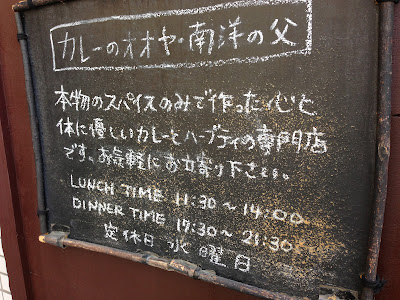 カレーのオオヤ・南洋の父
本物のスパイスのみで作った心と
体に優しいカレーとハーブティの専門店
です。お気軽にお立寄り下さい。
LUNCH TIME 11:30～14:00
DINNER TIME 17:30～21:30
定休日 水曜日